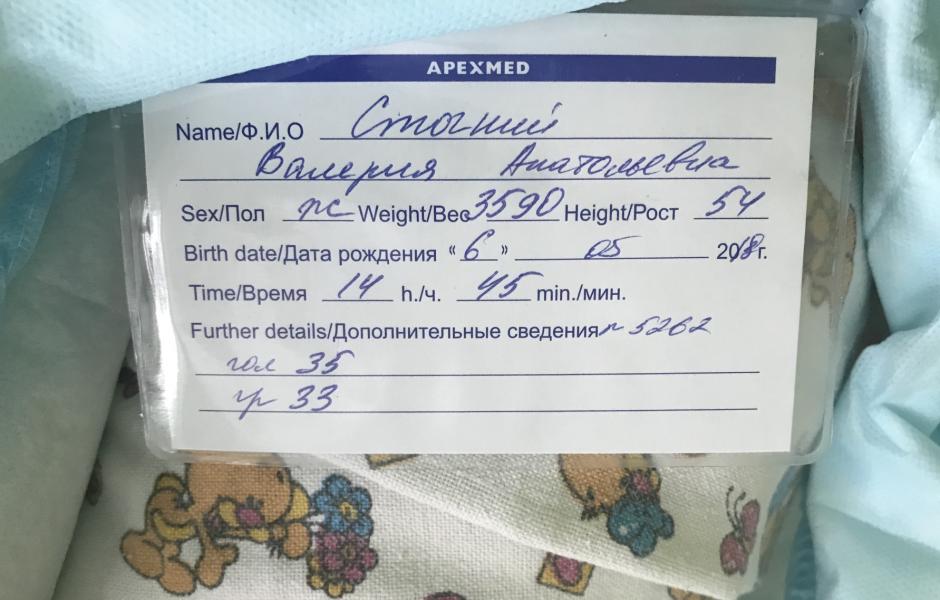 APEXMED
Name/Ф.И.О Стогний
Валерия Анатольевна
Sex/Пол ж Weight/Вес 3590 Height/Рост 54
Birth date/Дата рождения « 6 » 05 2018г.
Time/Время 14 h./ч. 45 min./мин.
Further details/Дополнительные сведения 5262
гол 35
гр 33